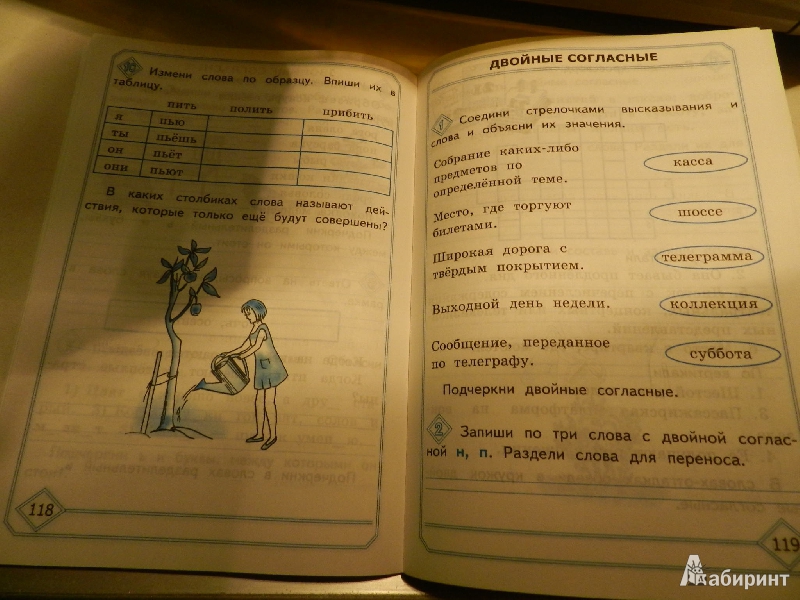 Измени слова по образцу. Впиши их в
таблицу.
пить полить прибить
я пью
ты пьёшь
он пьёт
они пьют
В каких столбиках слова называют дей-
ствия, которые только ещё будут совершены?
118
ДВОЙНЫЕ СОГЛАСНЫЕ
1 Соедини стрелочками высказывания и
слова и объясни их значения.
Собрание каких-либо
предметов по
определённой теме.
касса
Место, где торгуют
билетами.
шоссе
Широкая дорога с
твёрдым покрытием.
телеграмма
Выходной день недели.
коллекция
Сообщение, переданное
по телеграфу.
суббота
Подчеркни двойные согласные.
2 Запиши по три слова с двойной соглас-
ной н, п. Раздели слова для переноса.
119
Лабиринт